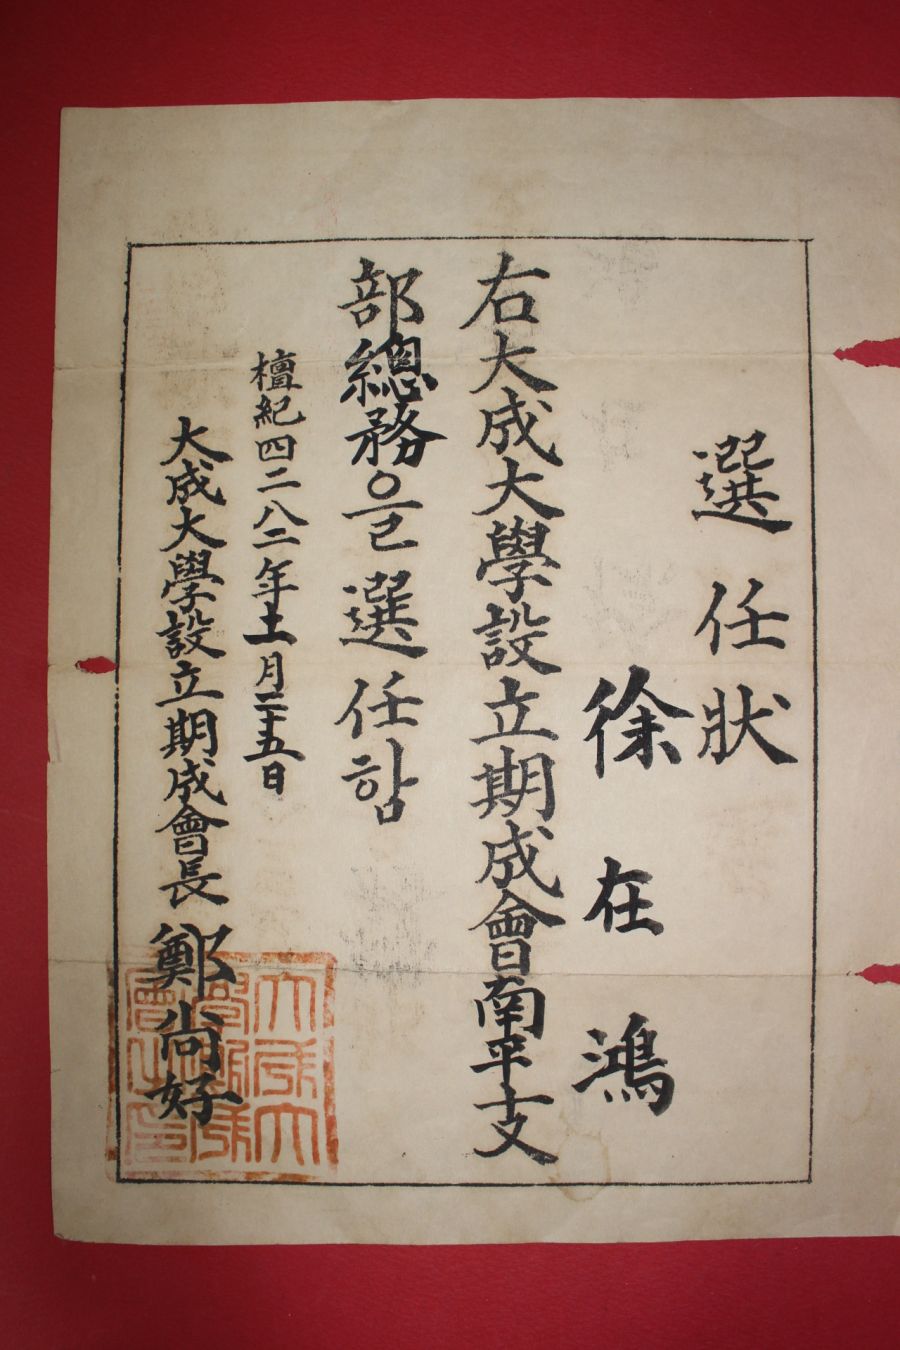 選任狀
徐在鴻
右大成大學設立期成會南平支
部總務을 選任함
檀紀四二八二年十一月二十五日
大成大學設立期成會長 鄭尙好
大成大
學期成
會之印